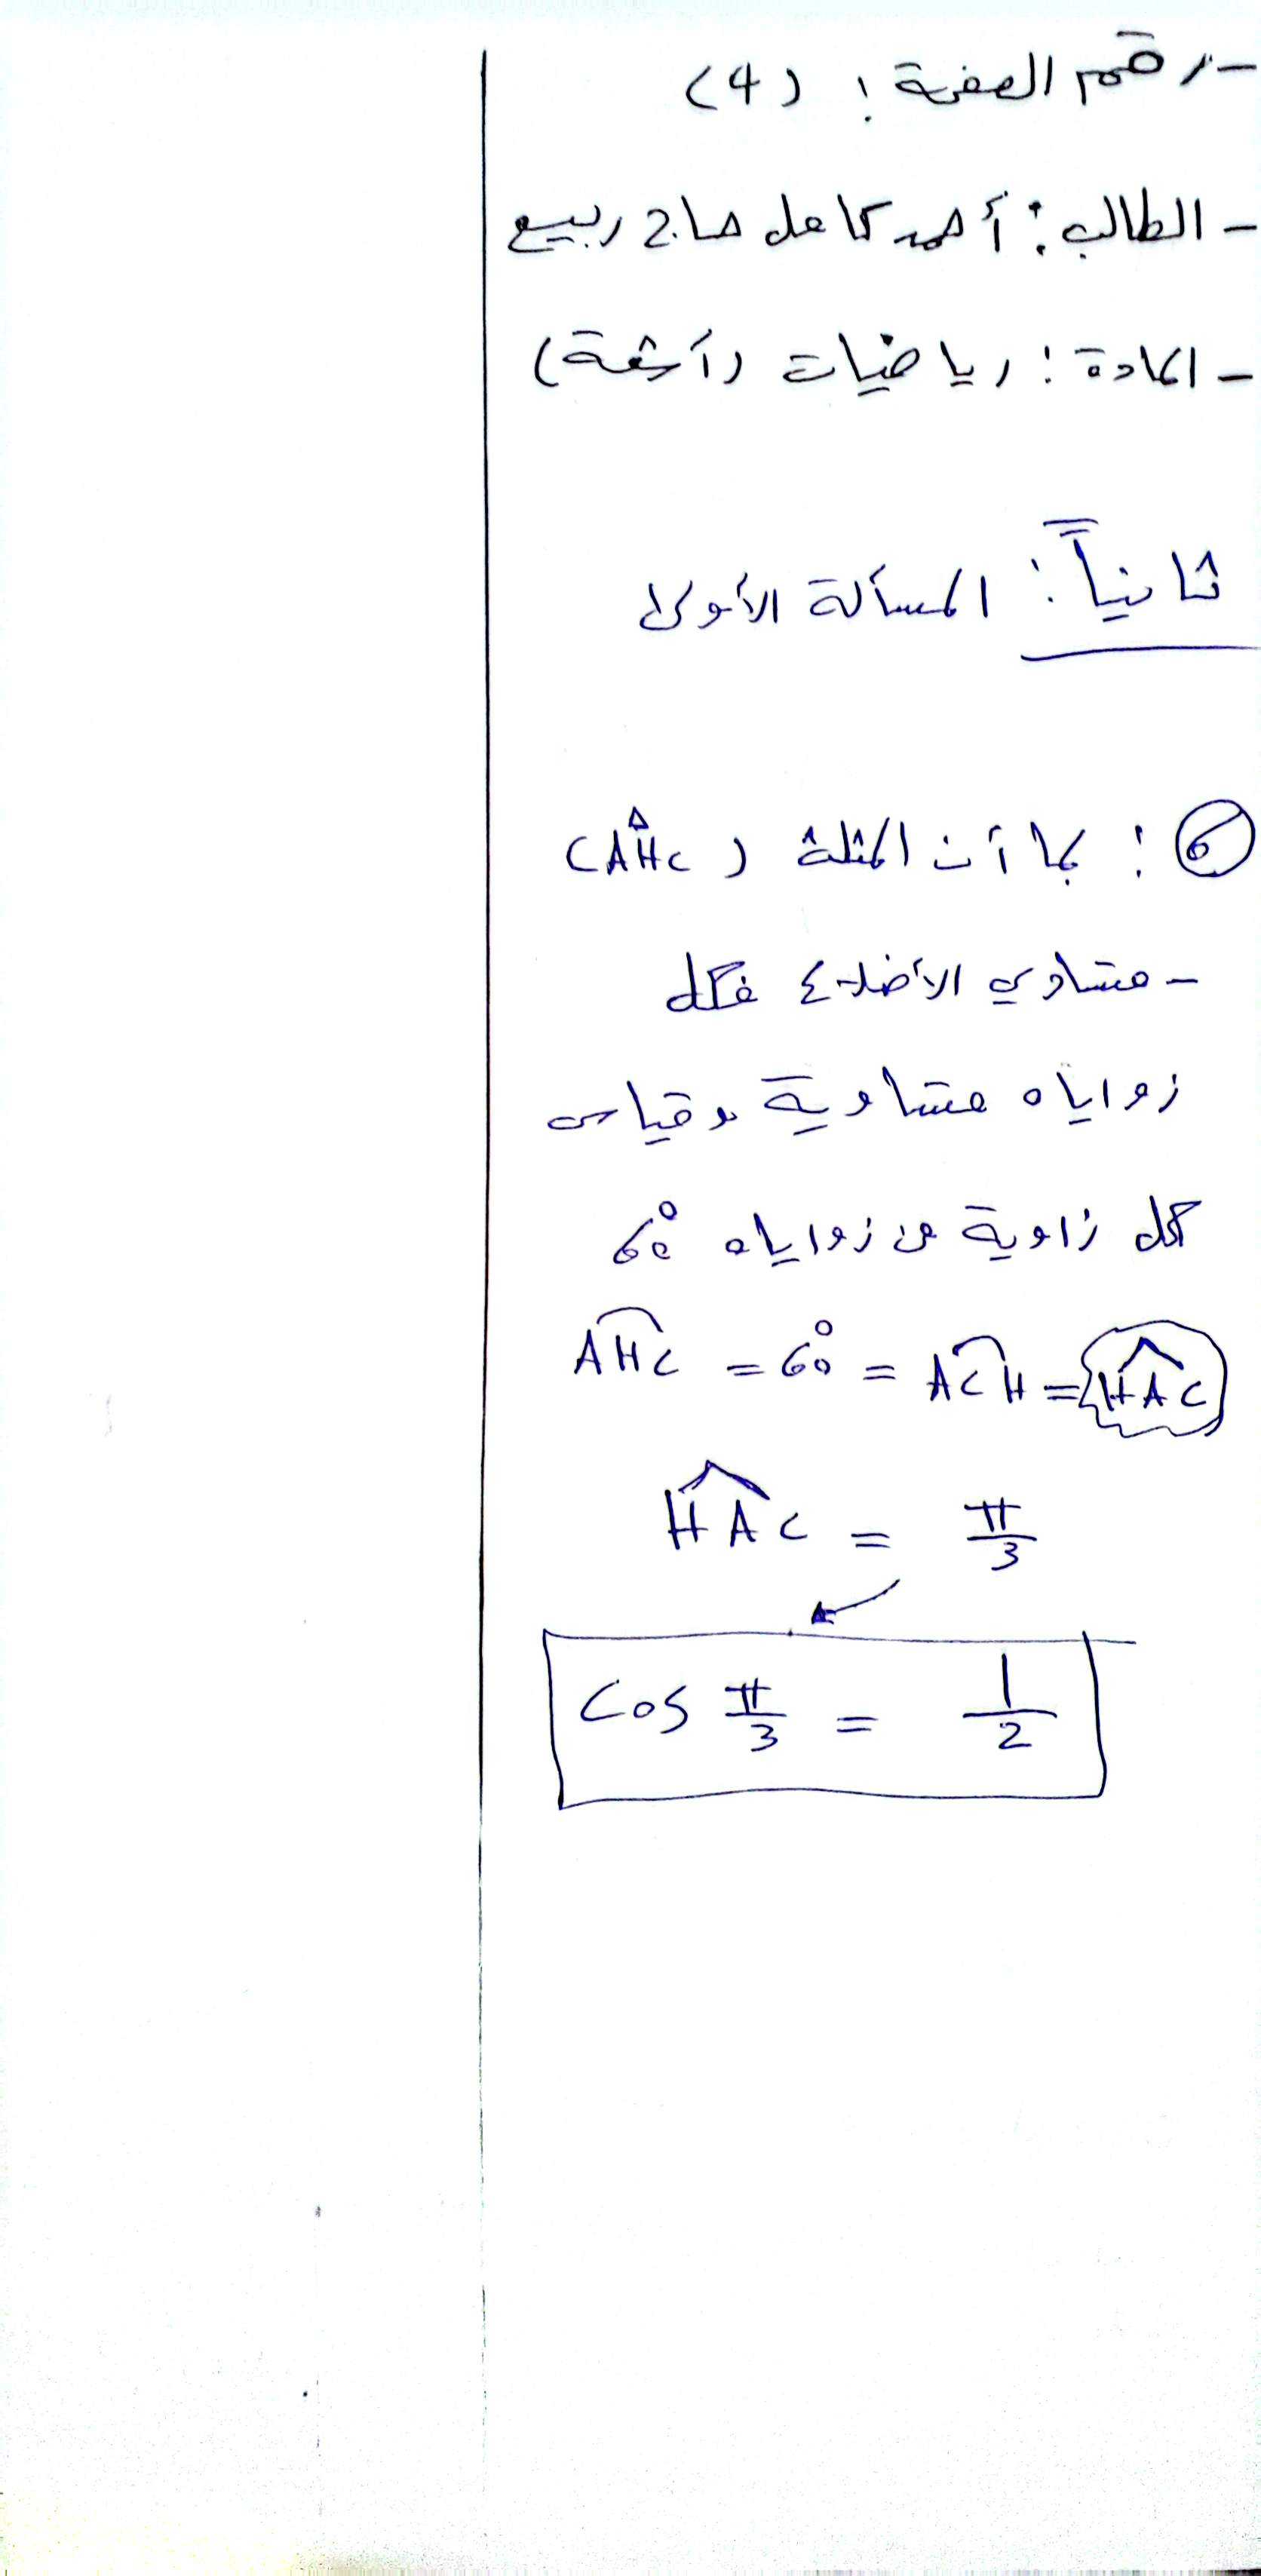 - رقم الصفحة : (4)
- الطالب : أحمد كامل حاج ربيع
- المادة : رياضيات (أشعة)
ثانياً : المسألة الأولى
6 : بما أن المثلث (AHC)
- متساوي الأضلاع فكل
زواياه متساوية وقياس
كل زاوية من زواياه 60°
AHC = 60° = ACH = HAC
HAC = π/3
Cos π/3 = 1/2